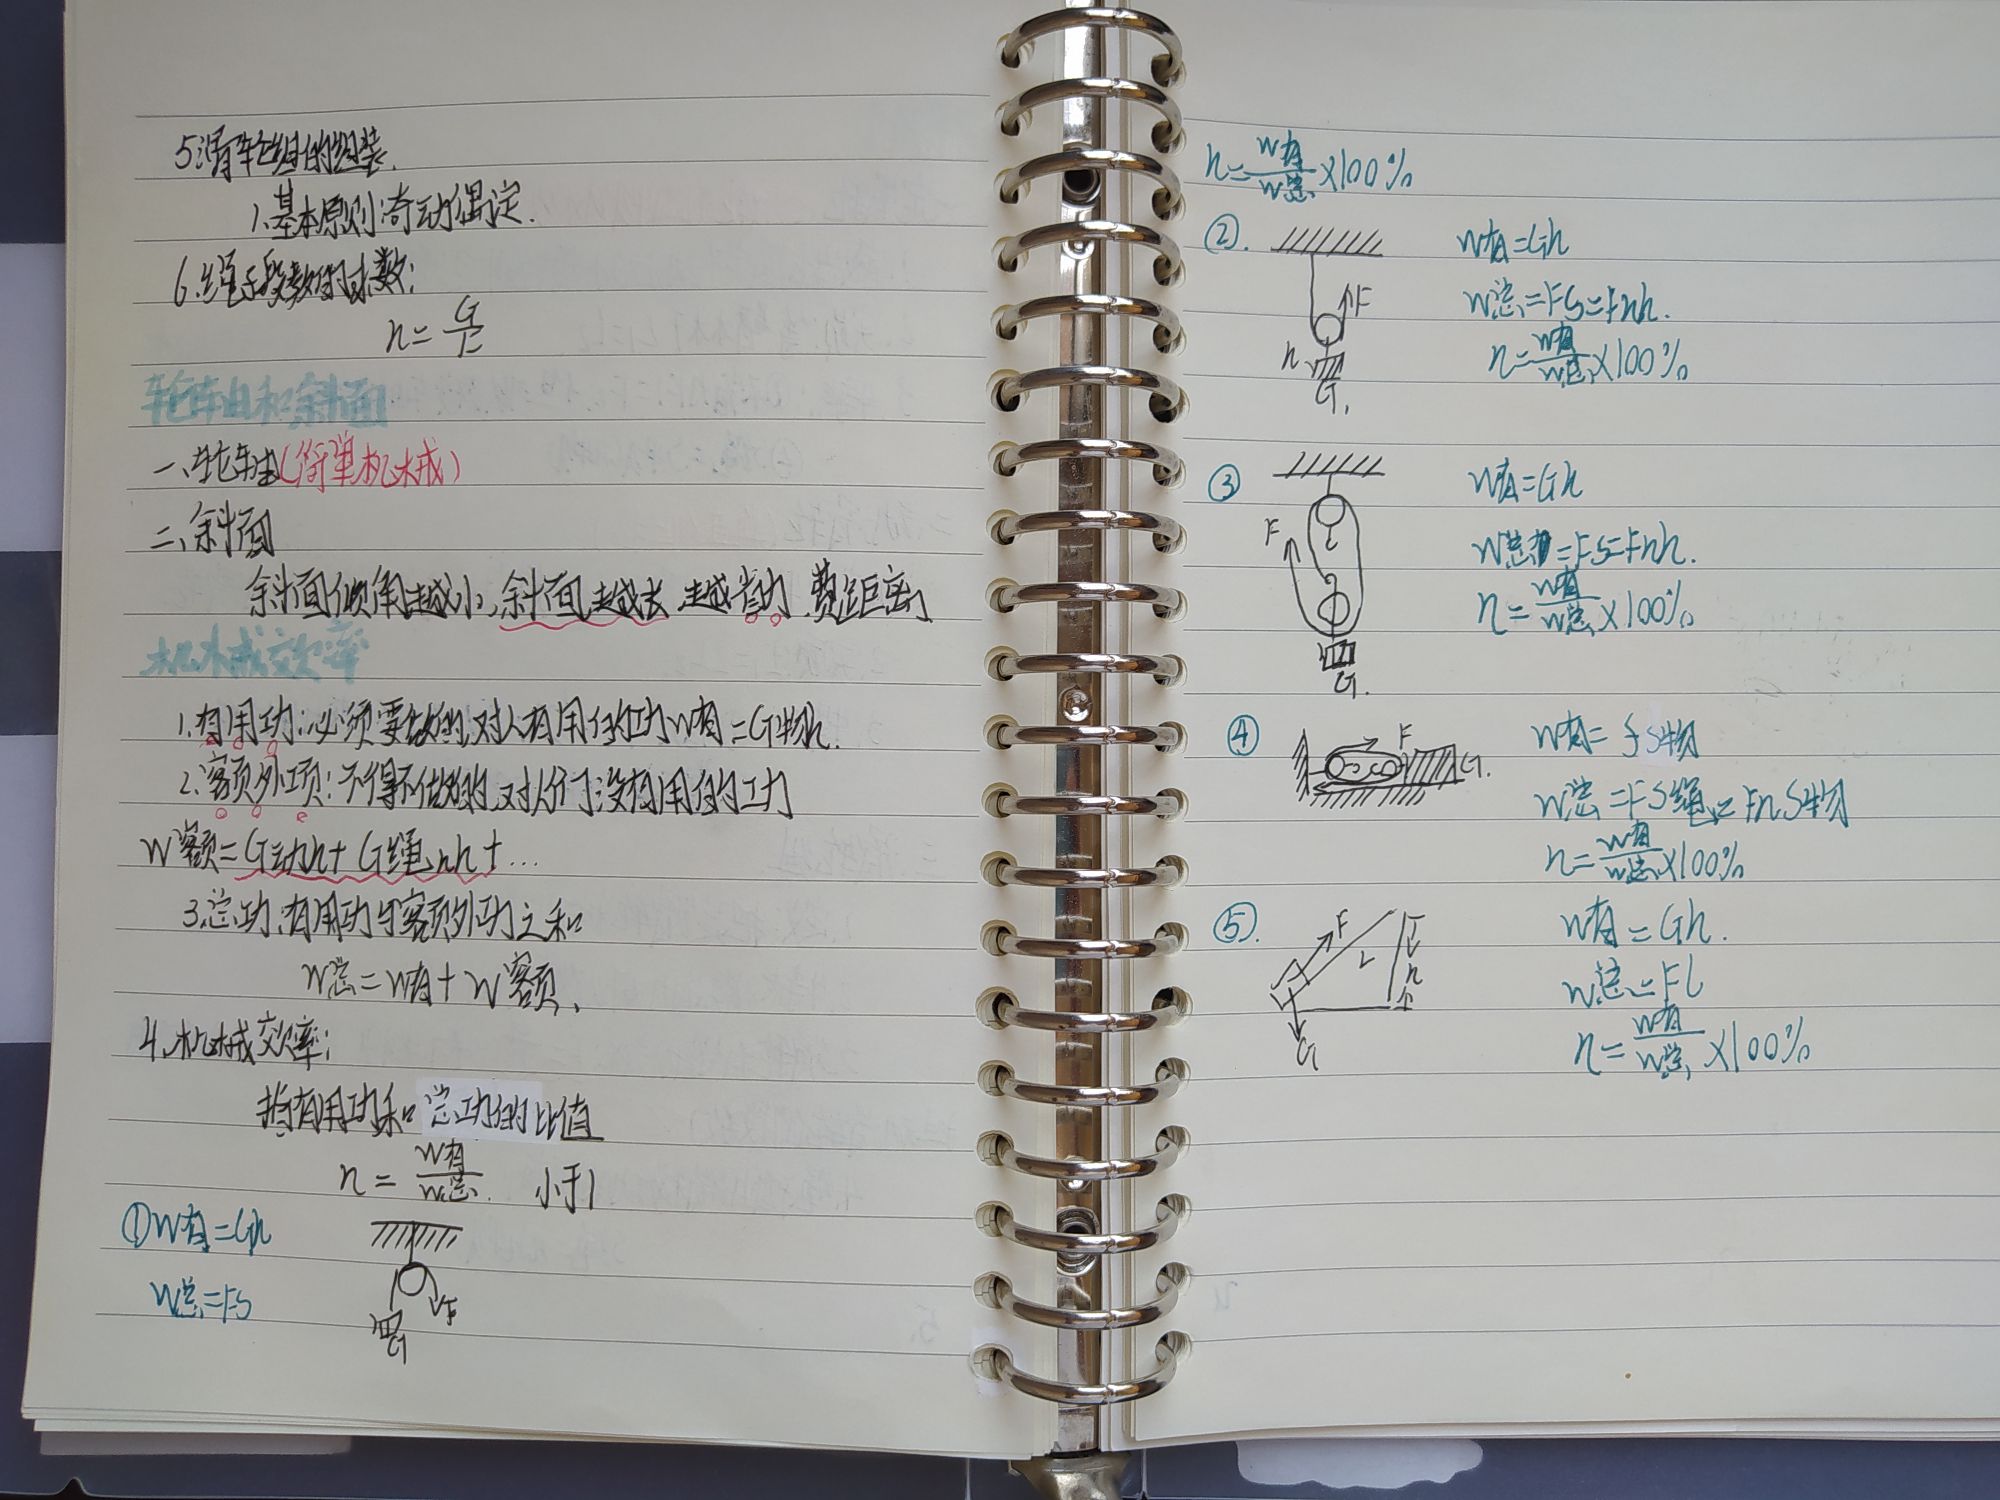 5.滑轮组的组装.
1.基本原则:奇动偶定.
6.绳子段数的求数:
n=G/F
轮车由和斜面
一、轮轴(简单机械)
二、斜面
斜面倾角越小,斜面越长 越省力 费距离
机械效率
1.有用功:必须要做的,对人有用的功W有=G物h.
2.额外功:不得不做的,对人们没有用的功
W额=G动h+G绳nh+…
3.总功:有用功与额外功之和
W总=W有+W额.
4.机械效率:
指有用功和总功的比值
η=W有/W总. 小于1
①W有=Gh
W总=FS
F
G
η=W有/W总×100%
②. W有=Gh
F W总=FS=Fnh.
h η=W有/W总×100%
G.
③ W有=Gh
F W总=FS=Fnh.
η=W有/W总×100%
G.
④ F G. W有=fS物
W总=FS绳=FnS物
η=W有/W总×100%
⑤. F L h W有=Gh.
W总=FL
G η=W有/W总×100%